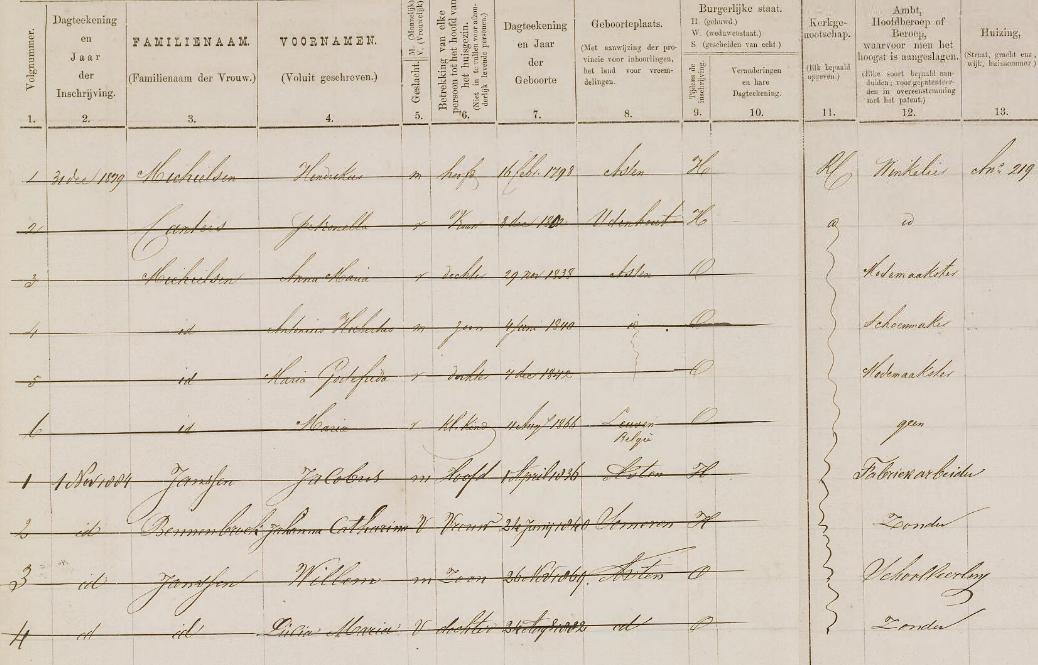 Volgnummer.
Dagteekening en Jaar der Inschrijving.
FAMILIENAAM. (Familienaam der Vrouw.)
VOORNAMEN. (Voluit geschreven.)
Geslacht. M. (Mannelijk) V. (Vrouwelijk)
Betrekking van elke persoon tot het hoofd van het huisgezin.
Dagteekening en Jaar der Geboorte
Geboorteplaats. (Met aanwijzing der provincie voor inboorlingen, het land voor vreemdelingen.
Burgerlijke staat. H (gehuwd.) W. (weduwenstaat.) S (gescheiden van echt)
Tijdens de inschrijving.
Veranderingen en hare Dagteekening.
Kerkgenootschap. (Elk bepaald opgeven.)
Ambt, Hoofdberoep of Beroep, waarvoor men het hoogst is aangeslagen. (Elke soort bepaald aanduiden; voor gepatenteerden in overeenstemming met het patent.)
Huizing, (Straat, gracht enz., wijk, huisnummer)
1. 2. 3. 4. 5. 6. 7. 8. 9. 10. 11. 12. 13.
1 31 dec 1879 Michielsen Hendrikus m hoofd 16 febr. 1798 Asten H RC Winkelier An° 219
2 Canters Petronella v Vrouw 8 dec Udenhout H id
3 Michielsen Anna Maria v dochter 29 nov 1838 Asten O Modemaakster
4 id Antonius Hubertus m zoon 4 1840 id O Schoenmaker
5 id Maria Godefrida v dochter 4 dec 1842 O Modemaakster
6 id Maria v kl. kind 11 Aug 1866 Leuven België O geen
1 1 Nov 1884 Janssen Jacobus m Hoofd 1 April 1836 Asten H Fabriekarbeider
2 id Bennenbroek Johanna Catharina V Vrouw 24 Juny 1840 Someren H Zonder
3 id Janssen Willem m Zoon 26 Nov Asten O Schoolleerling
4 id id Lucia Maria V dochter 24 Aug 1882 id O Zonder